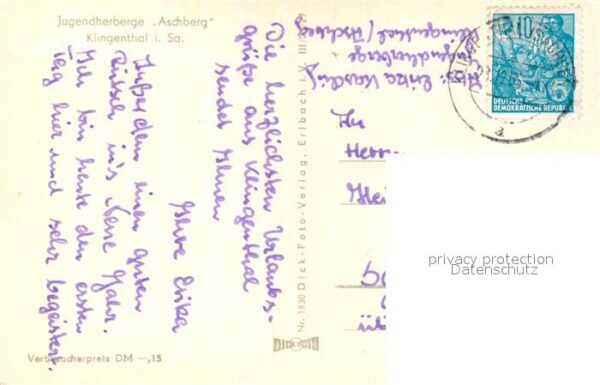 Jugendherberge „Aschberg“
Klingenthal i. Sa.
Die herzlichsten Urlaubs-
grüße aus Klingenthal
sendet Ihnen
Ihre Erika
Außerdem einen guten
Rutsch in's Neue Jahr.
Ich bin heute den ersten
Tag hier und sehr begeistert.
Verbraucherpreis DM —,15
Nr. 1830 Dick-Foto-Verlag, Erlbach i. V. III/
DICK FOTO
Erika
Jugendherberge
Klingenthal / Aschberg
DEUTSCHE
DEMOKRATISCHE REPUBLIK
5
a
An
Herrn
privacy protection
Datenschutz